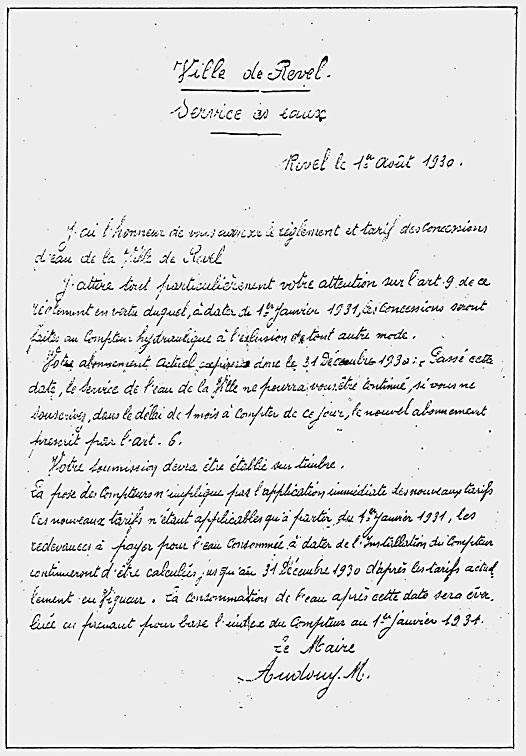 Ville de Revel.
Service des eaux
Revel le 1er Août 1930.
J'ai l'honneur de vous annexer le règlement et tarif des concessions
d'eau de la Ville de Revel
J'attire tout particulièrement votre attention sur l'art. 9 de ce
règlement en vertu duquel, à dater du 1er Janvier 1931, les concessions seront
faites au compteur hydraulique à l'exclusion de tout autre mode.
Votre abonnement actuel expirera donc le 31 Décembre 1930. Passé cette
date, le Service de l'eau de la Ville ne pourra vous être continué, si vous ne
souscrivez, dans le délai de 1 mois à compter de ce jour, le nouvel abonnement
prescrit par l'art. 6.
Votre soumission devra être établie sur timbre.
La pose des Compteurs n'implique pas l'application immédiate des nouveaux tarifs
Ces nouveaux tarifs n'étant applicables qu'à partir du 1er Janvier 1931, les
redevances à payer pour l'eau consommée à dater de l'Installation du Compteur
continueront d'être calculées, jusqu'au 31 Décembre 1930 d'après les tarifs actuel
lement en Vigueur. La consommation de l'eau après cette date sera éva
luée en prenant pour base l'index du Compteur au 1er Janvier 1931.
Le Maire
Audouy. M.